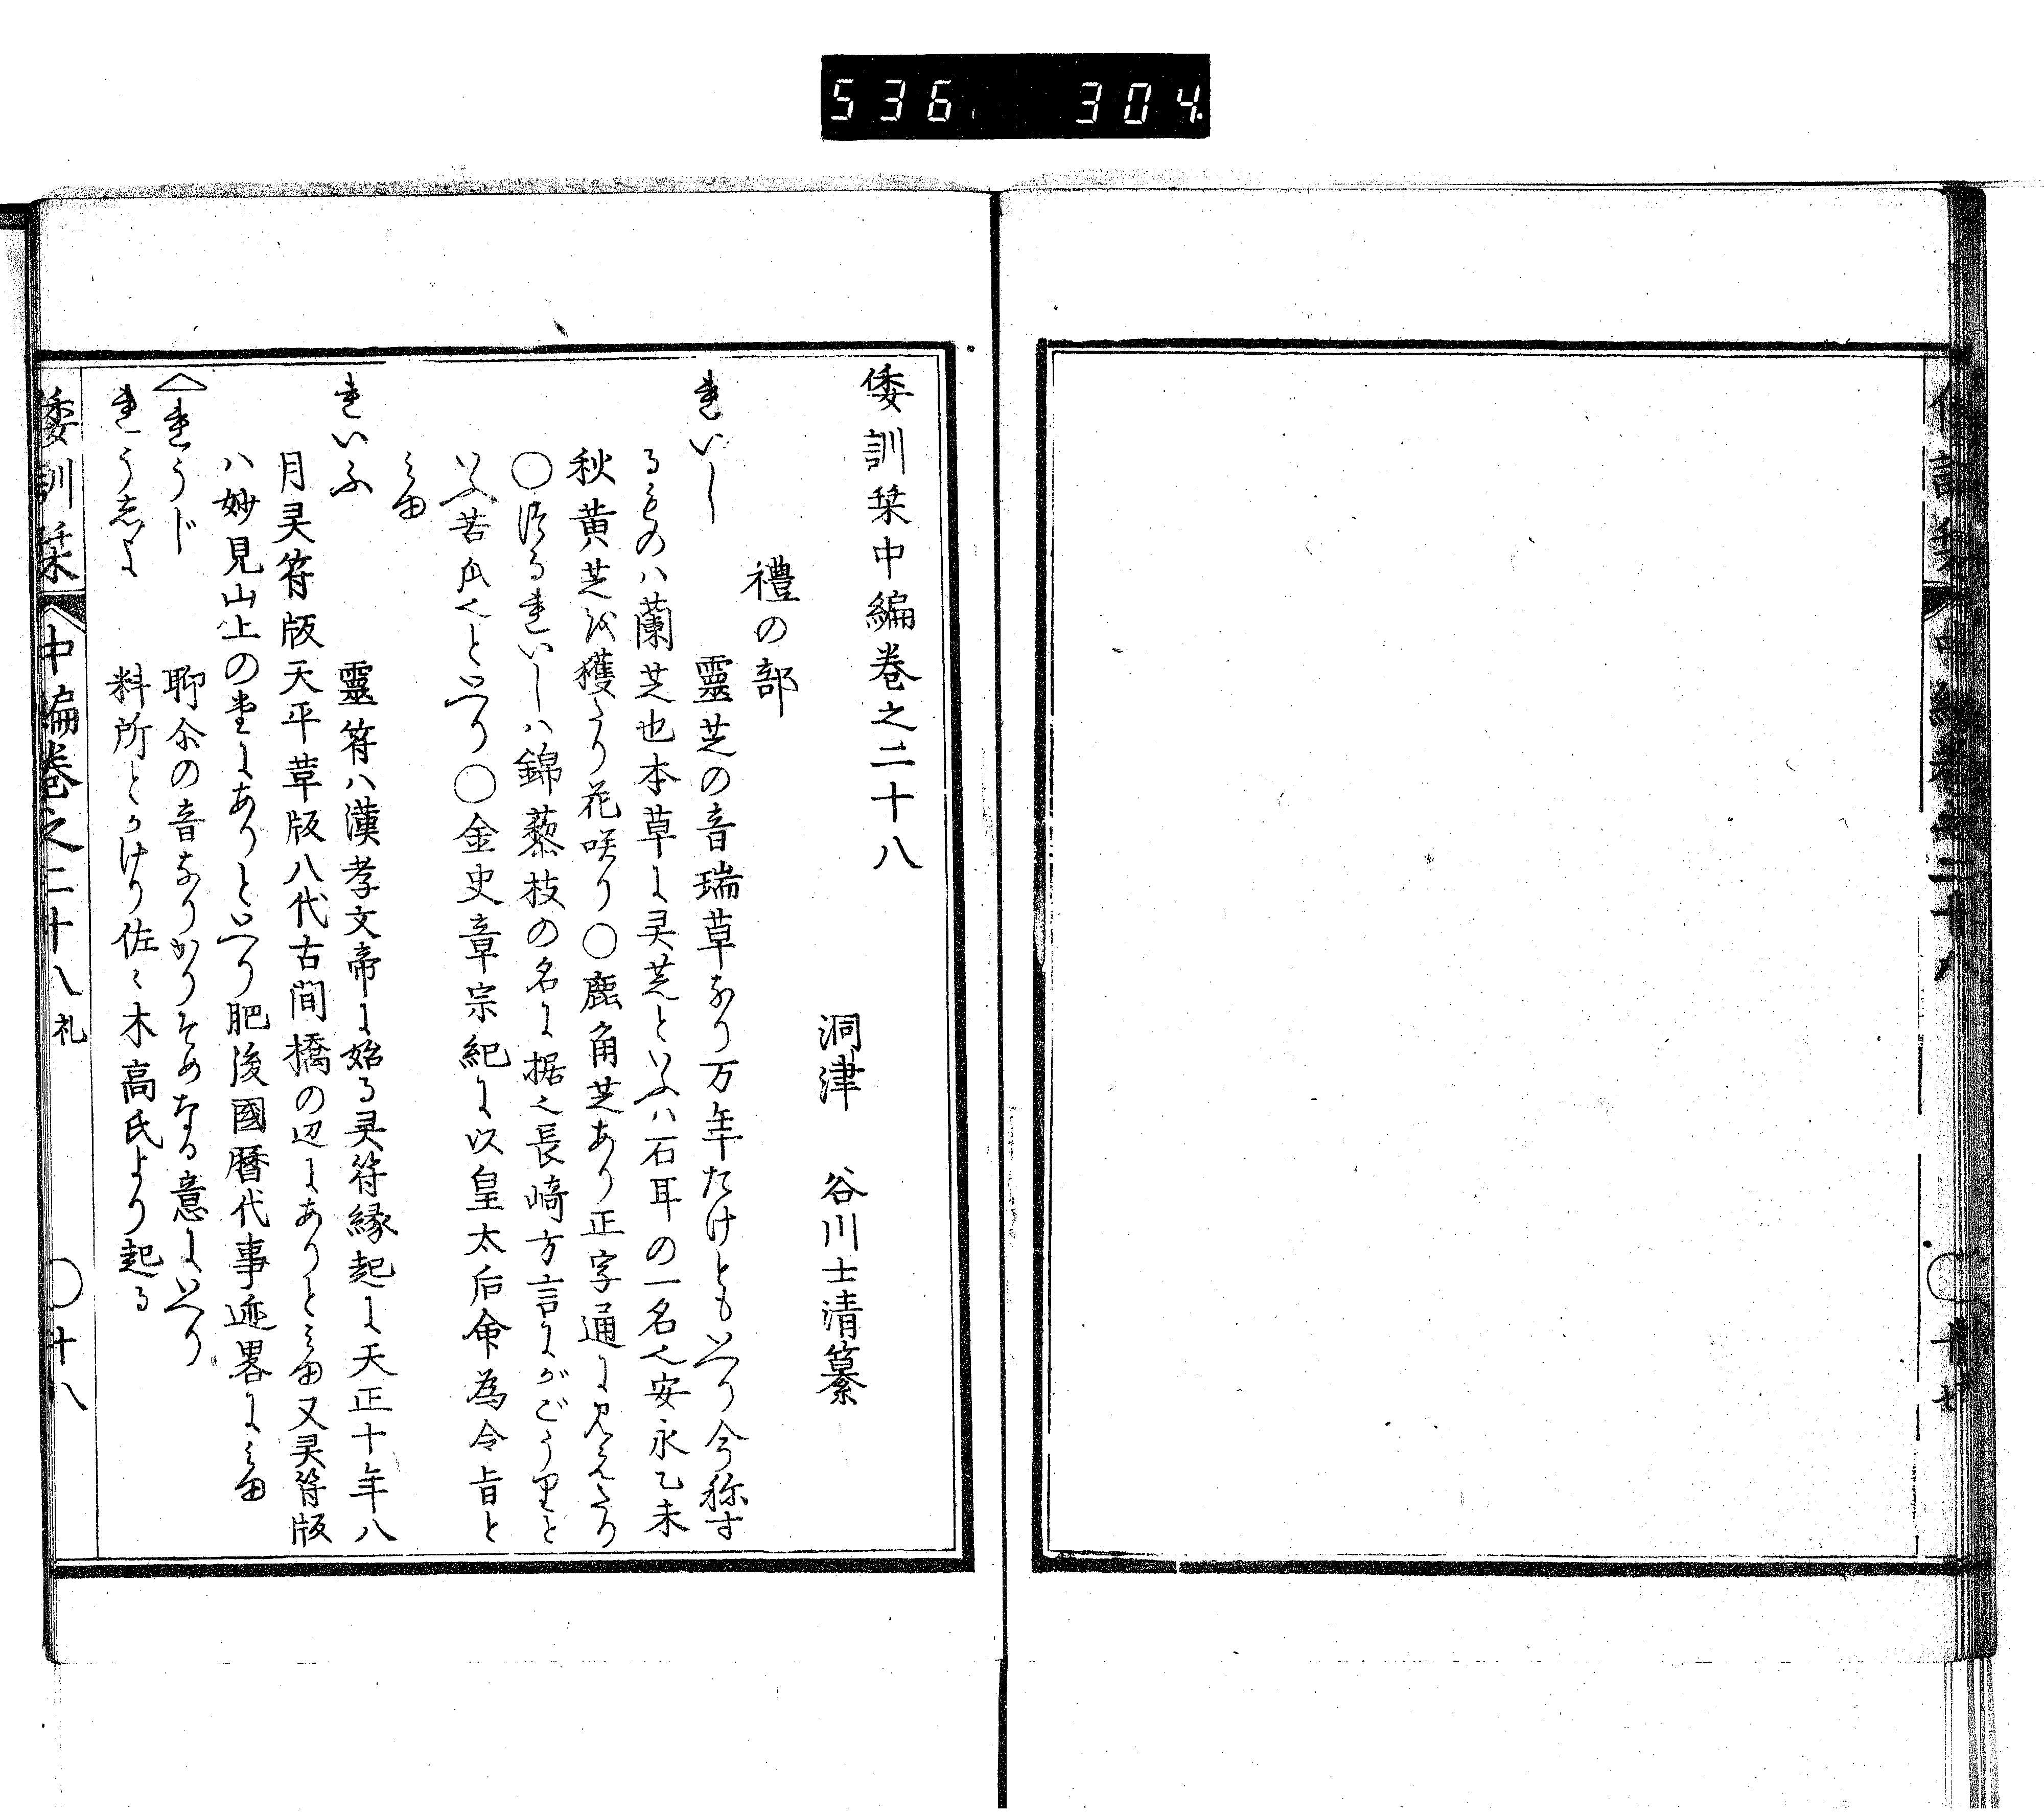 536 304
倭訓栞中編卷之二十八
洞津 谷川士清纂
禮の部
れいし 靈芝の音瑞草なり万年たけともいへり今称す
るものハ蘭芝也本草に灵芝といふハ石耳の一名也安永乙未
秋黄芝を獲たり花咲り○鹿角芝あり正字通に見えたり
○つるれいしハ錦茘枝の名に据也長崎方言にがごうりと
いふ苦瓜也といへり○金史章宗紀に以皇太后命為令旨と
みゆ
れいふ 靈符ハ漢孝文帝に始る灵符縁起に天正十年八
月灵符版天平草版八代古間橋の辺にありとみゆ又灵符版
ハ妙見山上の堂にありといへり肥後國曆代事迹畧にみゆ
れうじ 聊尒の音なりかりそめなる意にいへり
れうしよ 料所とかけり佐々木高氏より起る
倭訓栞 中編卷之二十八 礼 ○十八